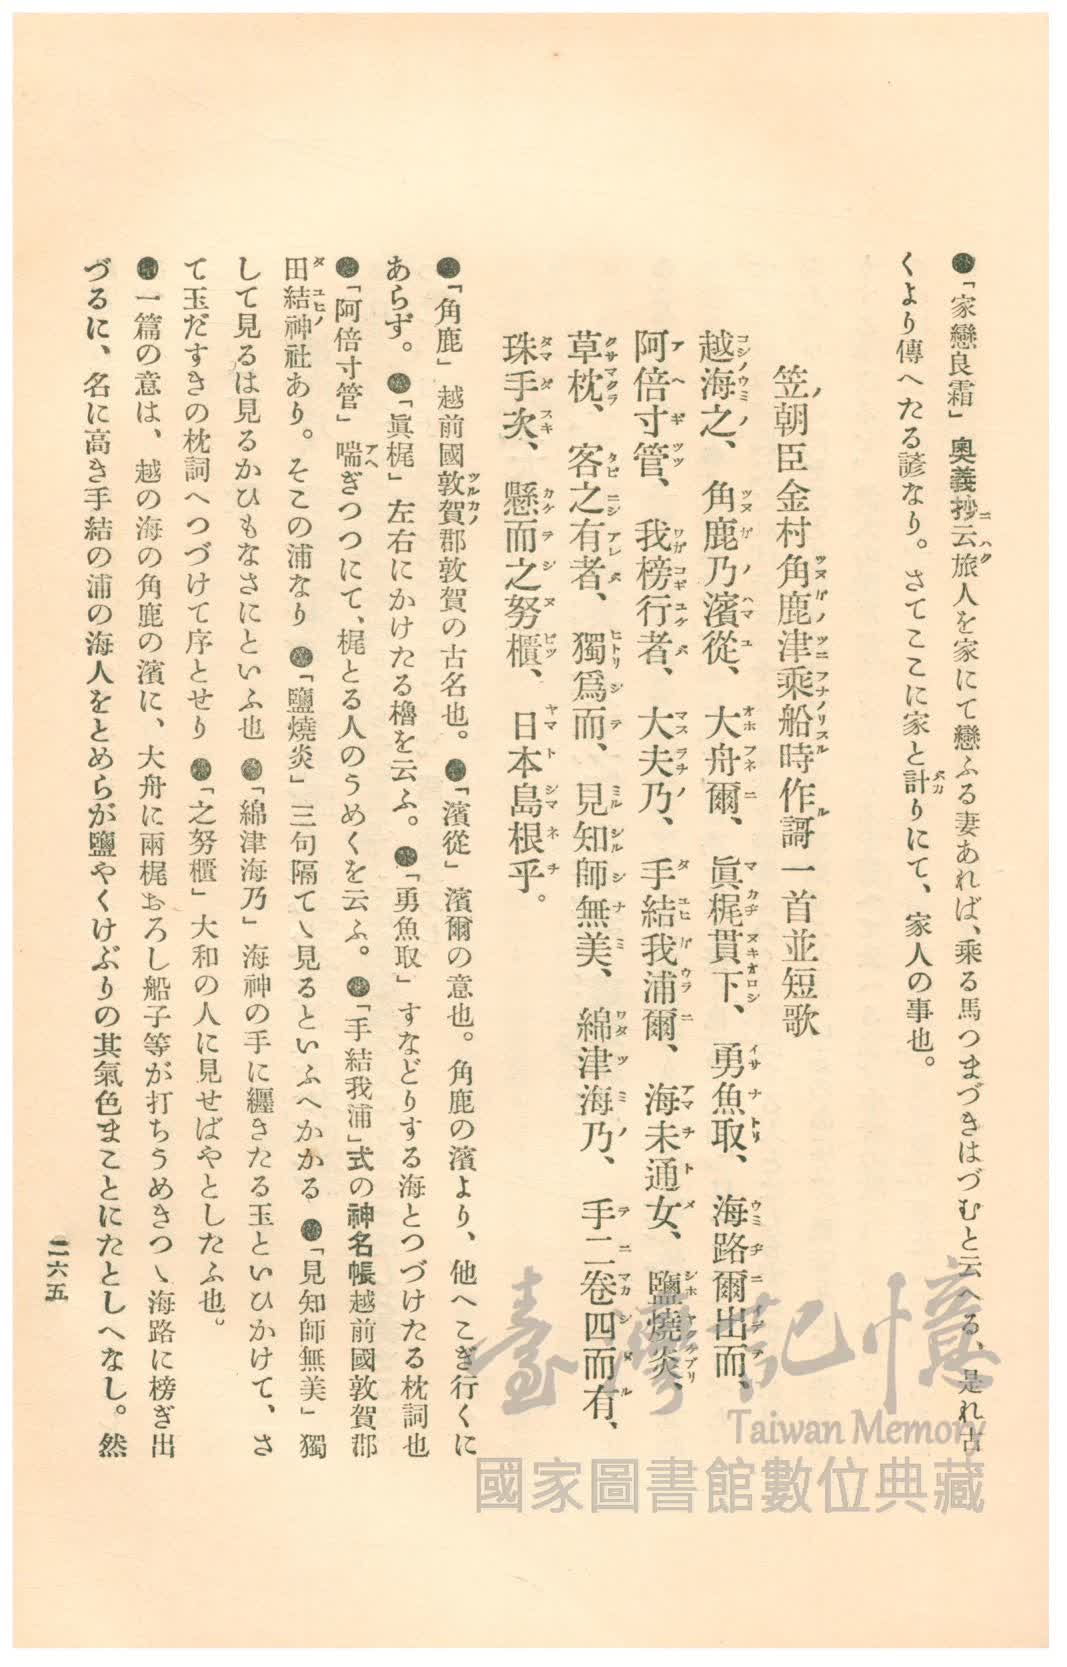 ●「家戀良霜」奧義抄云旅人を家にて戀ふる妻あれば、乘る馬つまづきはづむと云へる、是れ古
くより傳へたる諺なり。さてここに家と計りにて、家人の事也。
笠朝臣金村角鹿津乘船時作謌一首並短歌
越海之、角鹿乃濱從、大舟爾、眞梶貫下、勇魚取、海路爾出而、
阿倍寸管、我榜行者、大夫乃、手結我浦爾、海未通女、鹽燒炎、
草枕、客之有者、獨爲而、見知師無美、綿津海乃、手二卷四而有、
珠手次、懸而之努櫃、日本島根乎。
●「角鹿」越前國敦賀郡敦賀の古名也。●「濱從」濱爾の意也。角鹿の濱より、他へこぎ行くに
あらず。●「眞梶」左右にかけたる櫓を云ふ。●「勇魚取」すなどりする海とつづけたる枕詞也
●「阿倍寸管」喘ぎつつにて、梶とる人のうめくを云ふ。●「手結我浦」式の神名帳越前國敦賀郡
田結神社あり。そこの浦なり●「鹽燒炎」三句隔てゝ見るといふへかかる●「見知師無美」獨
して見るは見るかひもなさにといふ也●「綿津海乃」海神の手に纒きたる玉といひかけて、さ
て玉だすきの枕詞へつづけて序とせり●「之努櫃」大和の人に見せばやとしたふ也。
●一篇の意は、越の海の角鹿の濱に、大舟に兩梶おろし船子等が打ちうめきつゝ海路に榜ぎ出
づるに、名に高き手結の浦の海人をとめらが鹽やくけぶりの其氣色まことにたとしへなし。然
二六五
臺灣記憶
Taiwan Memory
國家圖書館數位典藏